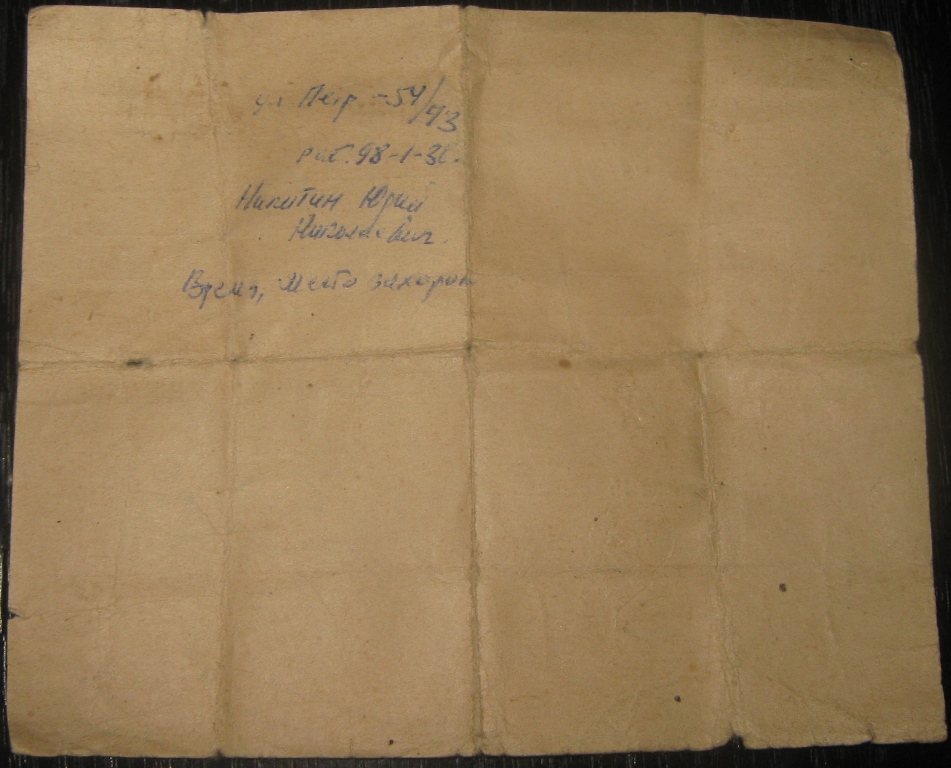 ул Петр. -54/43
раб. 98-1-30.
Никитин Юрий
Николаевич.
Время, место захорон